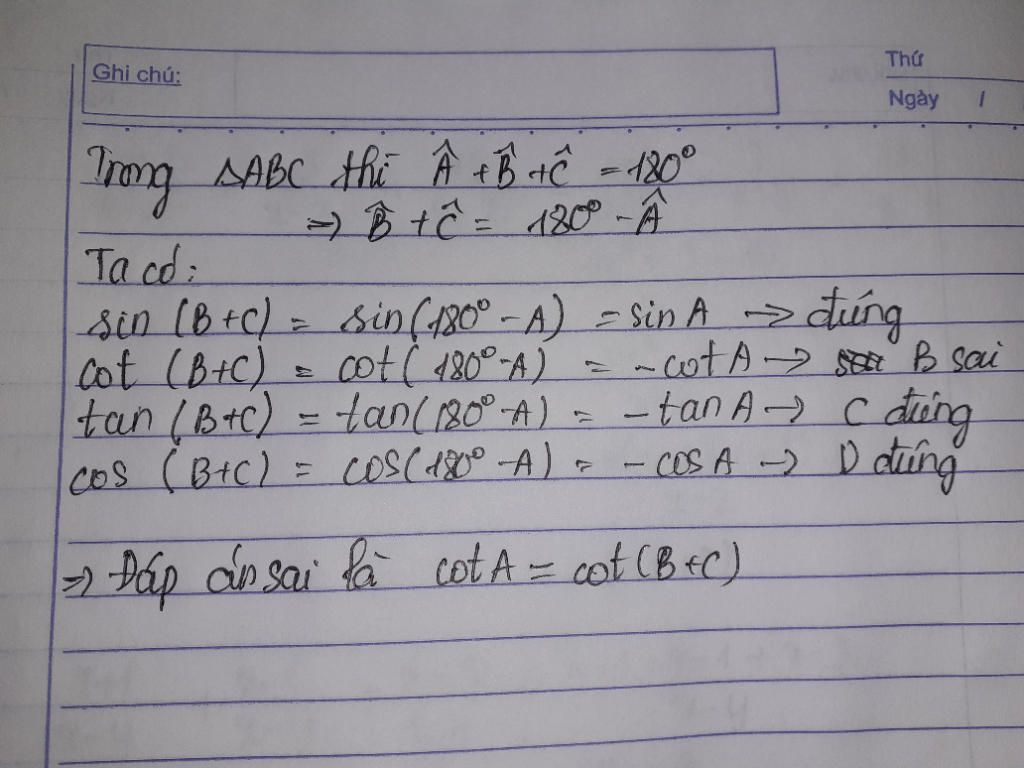 Ghi chú:
Thứ
Ngày /
Trong △ABC thì Â + B̂ + Ĉ = 180°
=> B̂ + Ĉ = 180° - Â
Ta có:
sin (B+C) = sin(180° - A) = sin A -> đúng
cot (B+C) = cot(180° - A) = - cot A -> B sai
tan (B+C) = tan(180° - A) = - tan A -> C đúng
cos (B+C) = cos(180° - A) = - cos A -> D đúng
=> Đáp án sai là cot A = cot(B+C)